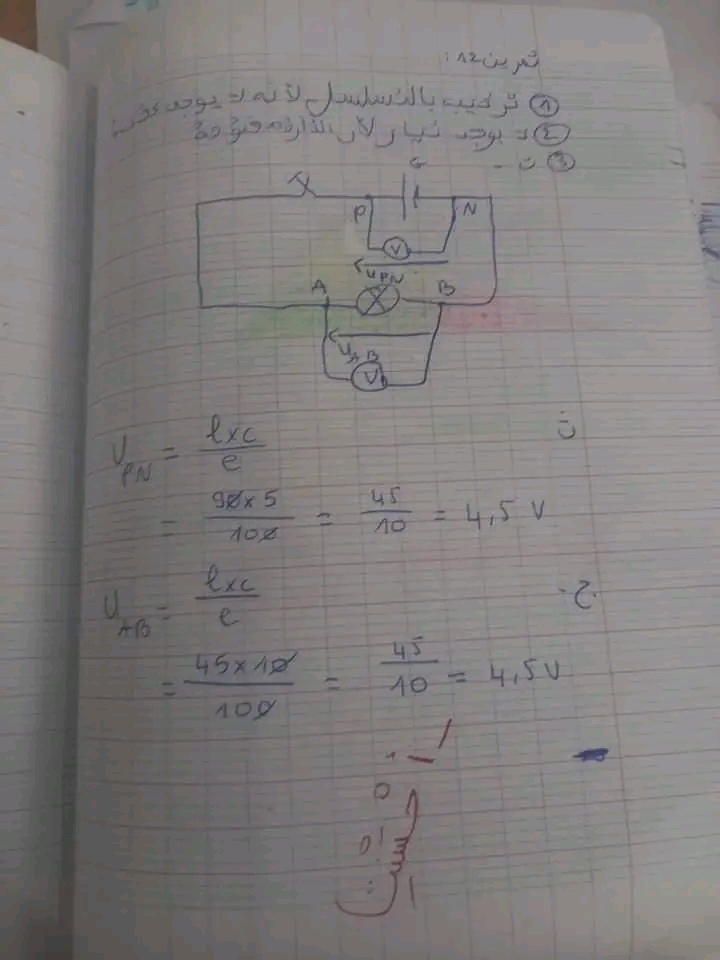 تمرين 12:
① تركيب بالتسلسل لأنه لا يوجد
② لا يوجد تيار لأن الدارة مفتوحة
③ ت -
G
P N
V
U PN
A B
U AB
V
ت -
U PN = l×c / e
= 90×5 / 100 = 45 / 10 = 4,5 V
ج -
U AB = l×c / e
= 45×10 / 100 = 45 / 10 = 4,5 V